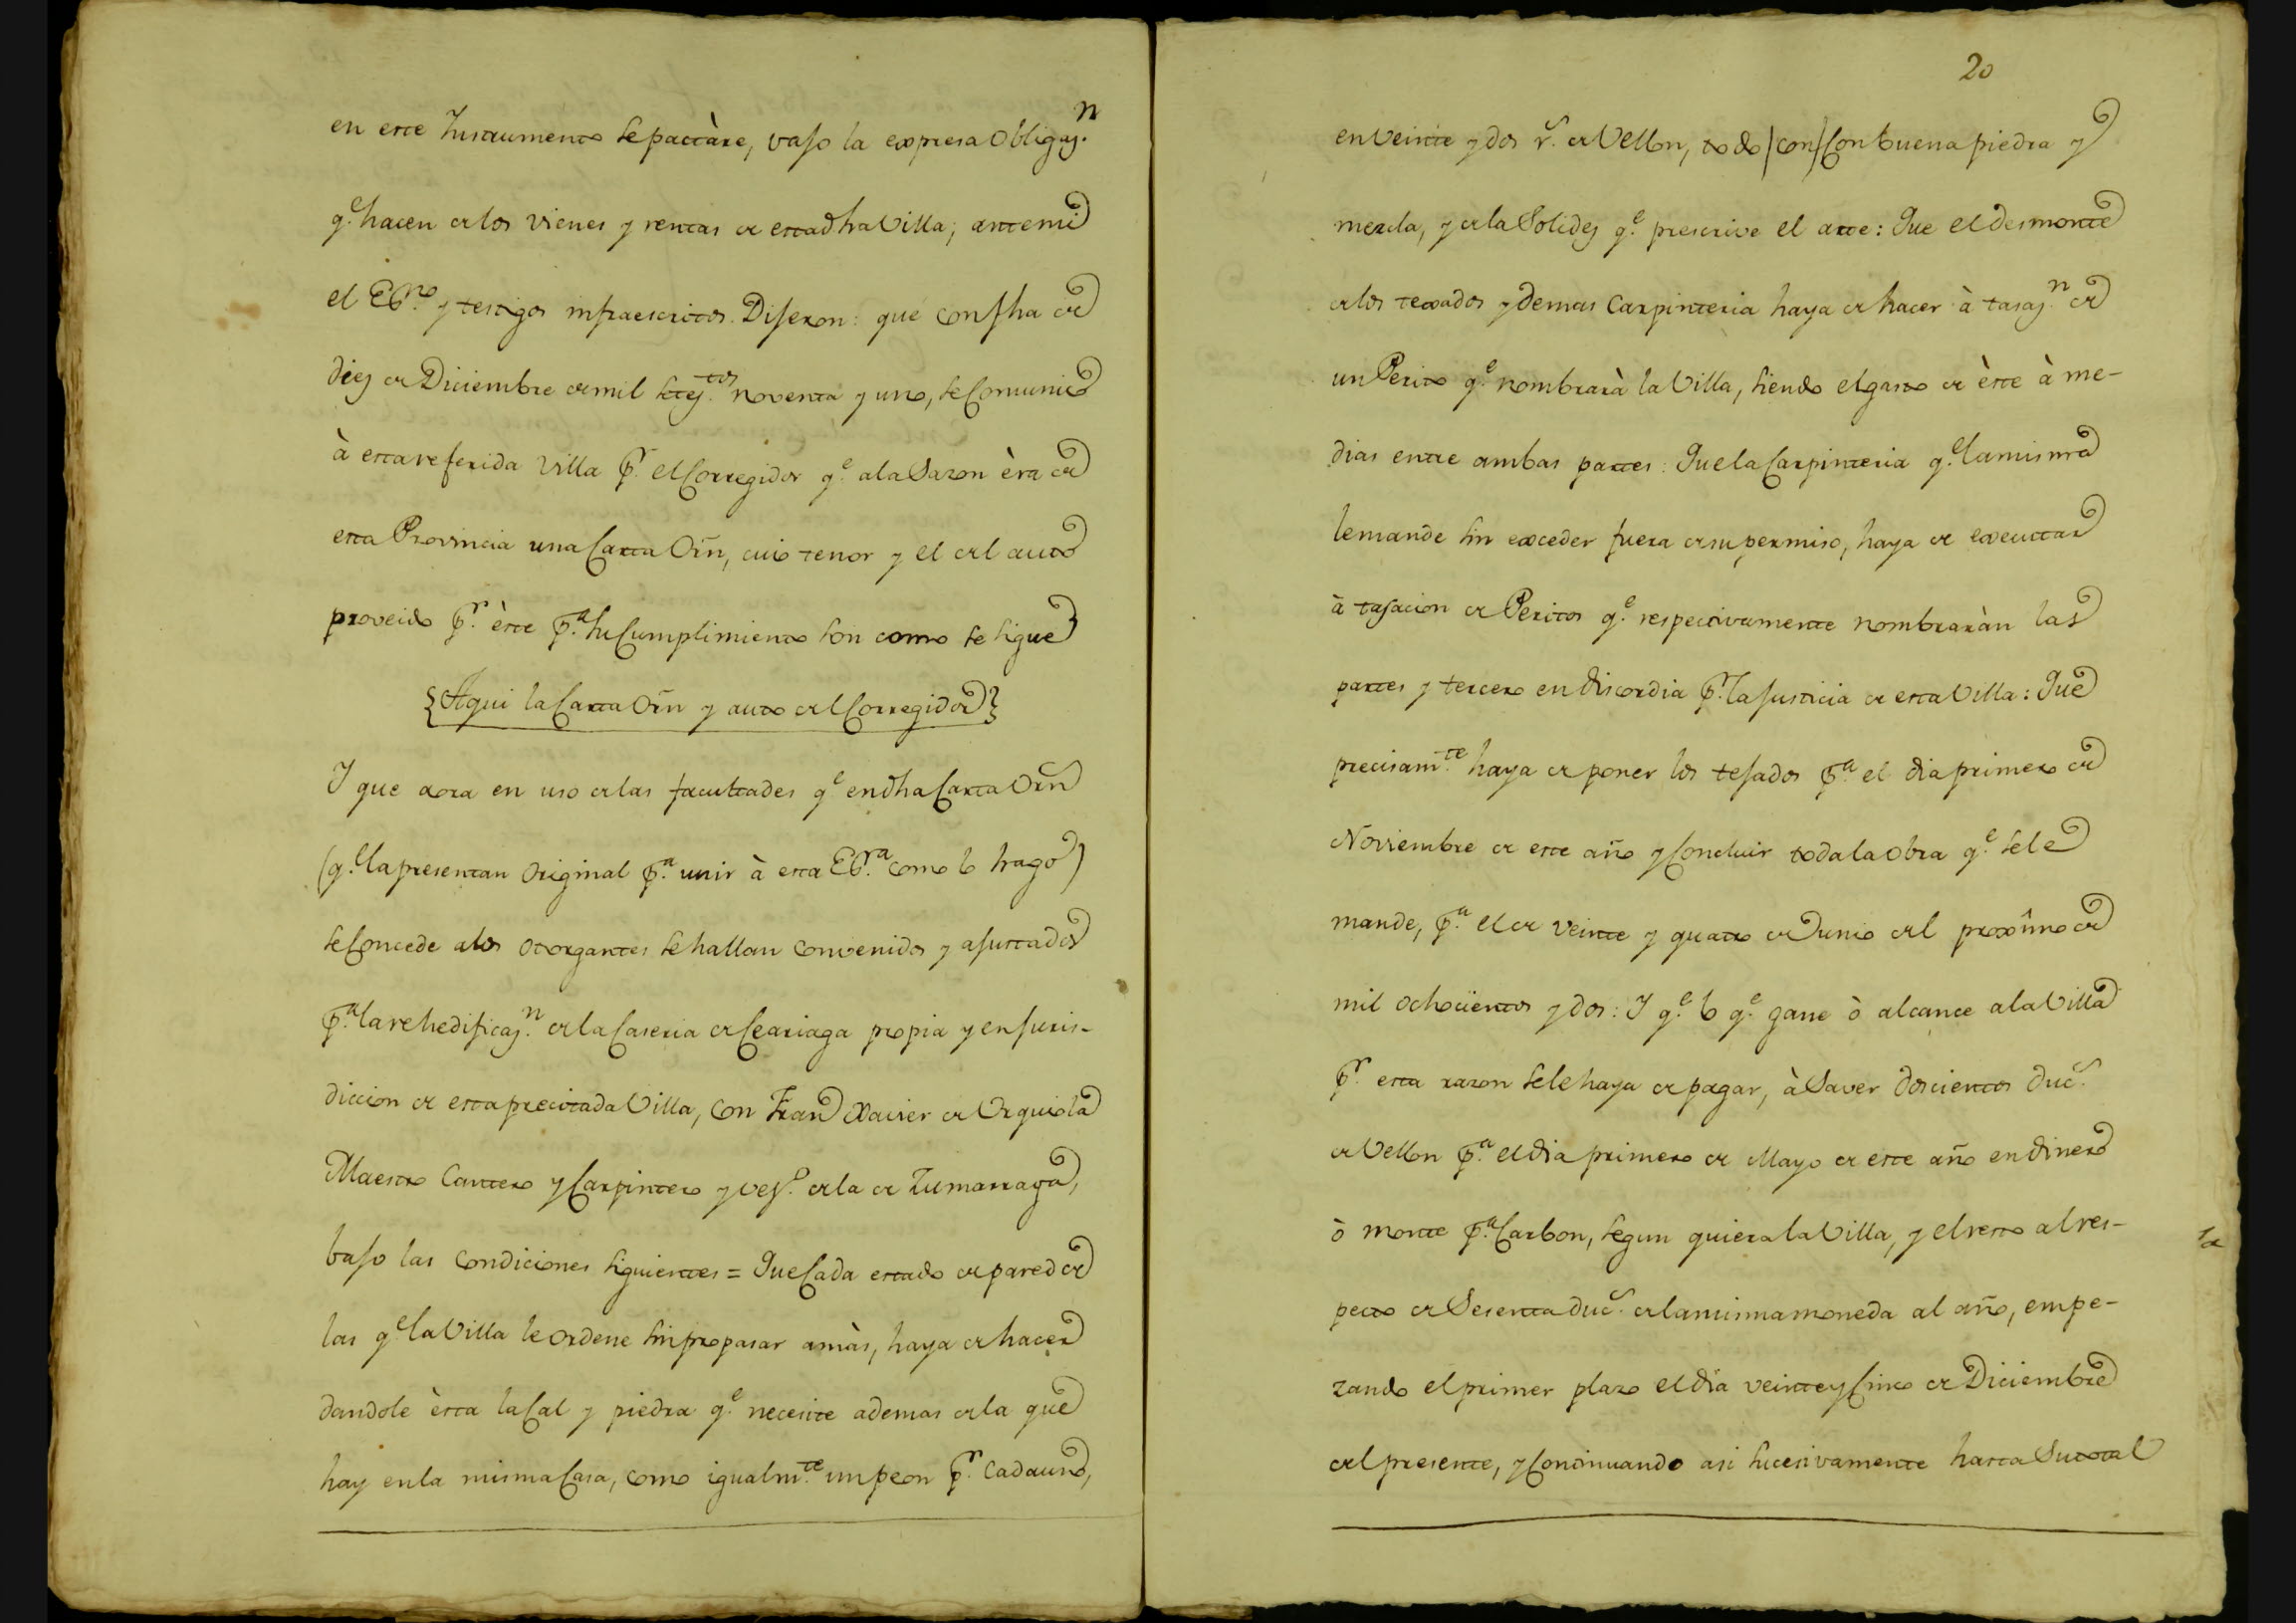 en este Instrumento se pactàre, vajo la expresa Obligaz.n
q.e hacen de los vienes y rentas de esta dha Villa; ante mi
el Es.no y testigos infraescritos Dijeron: que con fha de
diez de Diciembre de mil setez.tos noventa y uno, se Comunicò
à esta referida Villa p.r el Corregidor q.e a la Sazon èra de
esta Provincia una Carta Orñ, cuio tenor y el del auto
proveido p.r èste p.a su Cumplimiento son como se sigue
{Aqui la Carta Orñ y auto del Corregidor}
I que aora en uso de las facultades q.e en dha Carta Orñ
(q.e la presentan Original p.a unir à esta Es.ra como lo hago)
se Concede a los otorgantes se hallan Convenidos y ajustados
p.a la rehedificaz.n de la Caseria de Ceariaga propia y en juris-
diccion de esta precitada Villa, con Fran.co Xavier de Urquiola
Maestro Cantero y Carpintero y vez.o de la de Zumarraga,
bajo las Condiciones siguientes = Que Cada estado de pared de
las q.e la Villa le Ordene sin propasar a màs, haya de hacer
dandole èsta la Cal y piedra q.e necesite ademas de la que
hay en la misma Casa, como igualm.te un peon p.r Cada uno,
20
en Veinte y dos r.s de Vellon, todo /con/ Con buena piedra y
mezcla, y de la Solidez q.e prescrive el arte: Que el desmonte
de los texados y demas Carpinteria haya de hacer à tasaz.n de
un Perito q.e nombrarà la Villa, siendo el gasto de èste à me-
dias entre ambas partes: Que la Carpinteria q.e la misma
le mande sin exceder fuera de su permiso, haya de executar
à tasacion de Peritos q.e respectivamente nombraràn las
partes y tercero en discordia p.r la Justicia de esta Villa: Que
precisam.te haya de poner los tejados p.a el dia primero de
Noviembre de este año y Concluir toda la Obra q.e se le
mande, p.a el de veinte y quatro de Junio del proximo de
mil ochocientos y dos: I q.e lo q.e gane ò alcance a la Villa
p.r esta razon se le haya de pagar, à Saver doscientos duc.s
de Vellon p.a el dia primero de Mayo de este año en dinero
ò monte p.a Carbon, segun quiera la Villa, y el resto al res-
pecto de Sesenta duc.s de la misma moneda al año, empe-
zando el primer plazo el dia veinte y Cinco de Diciembre
del presente, y Continuando asi sucesivamente hasta Su total